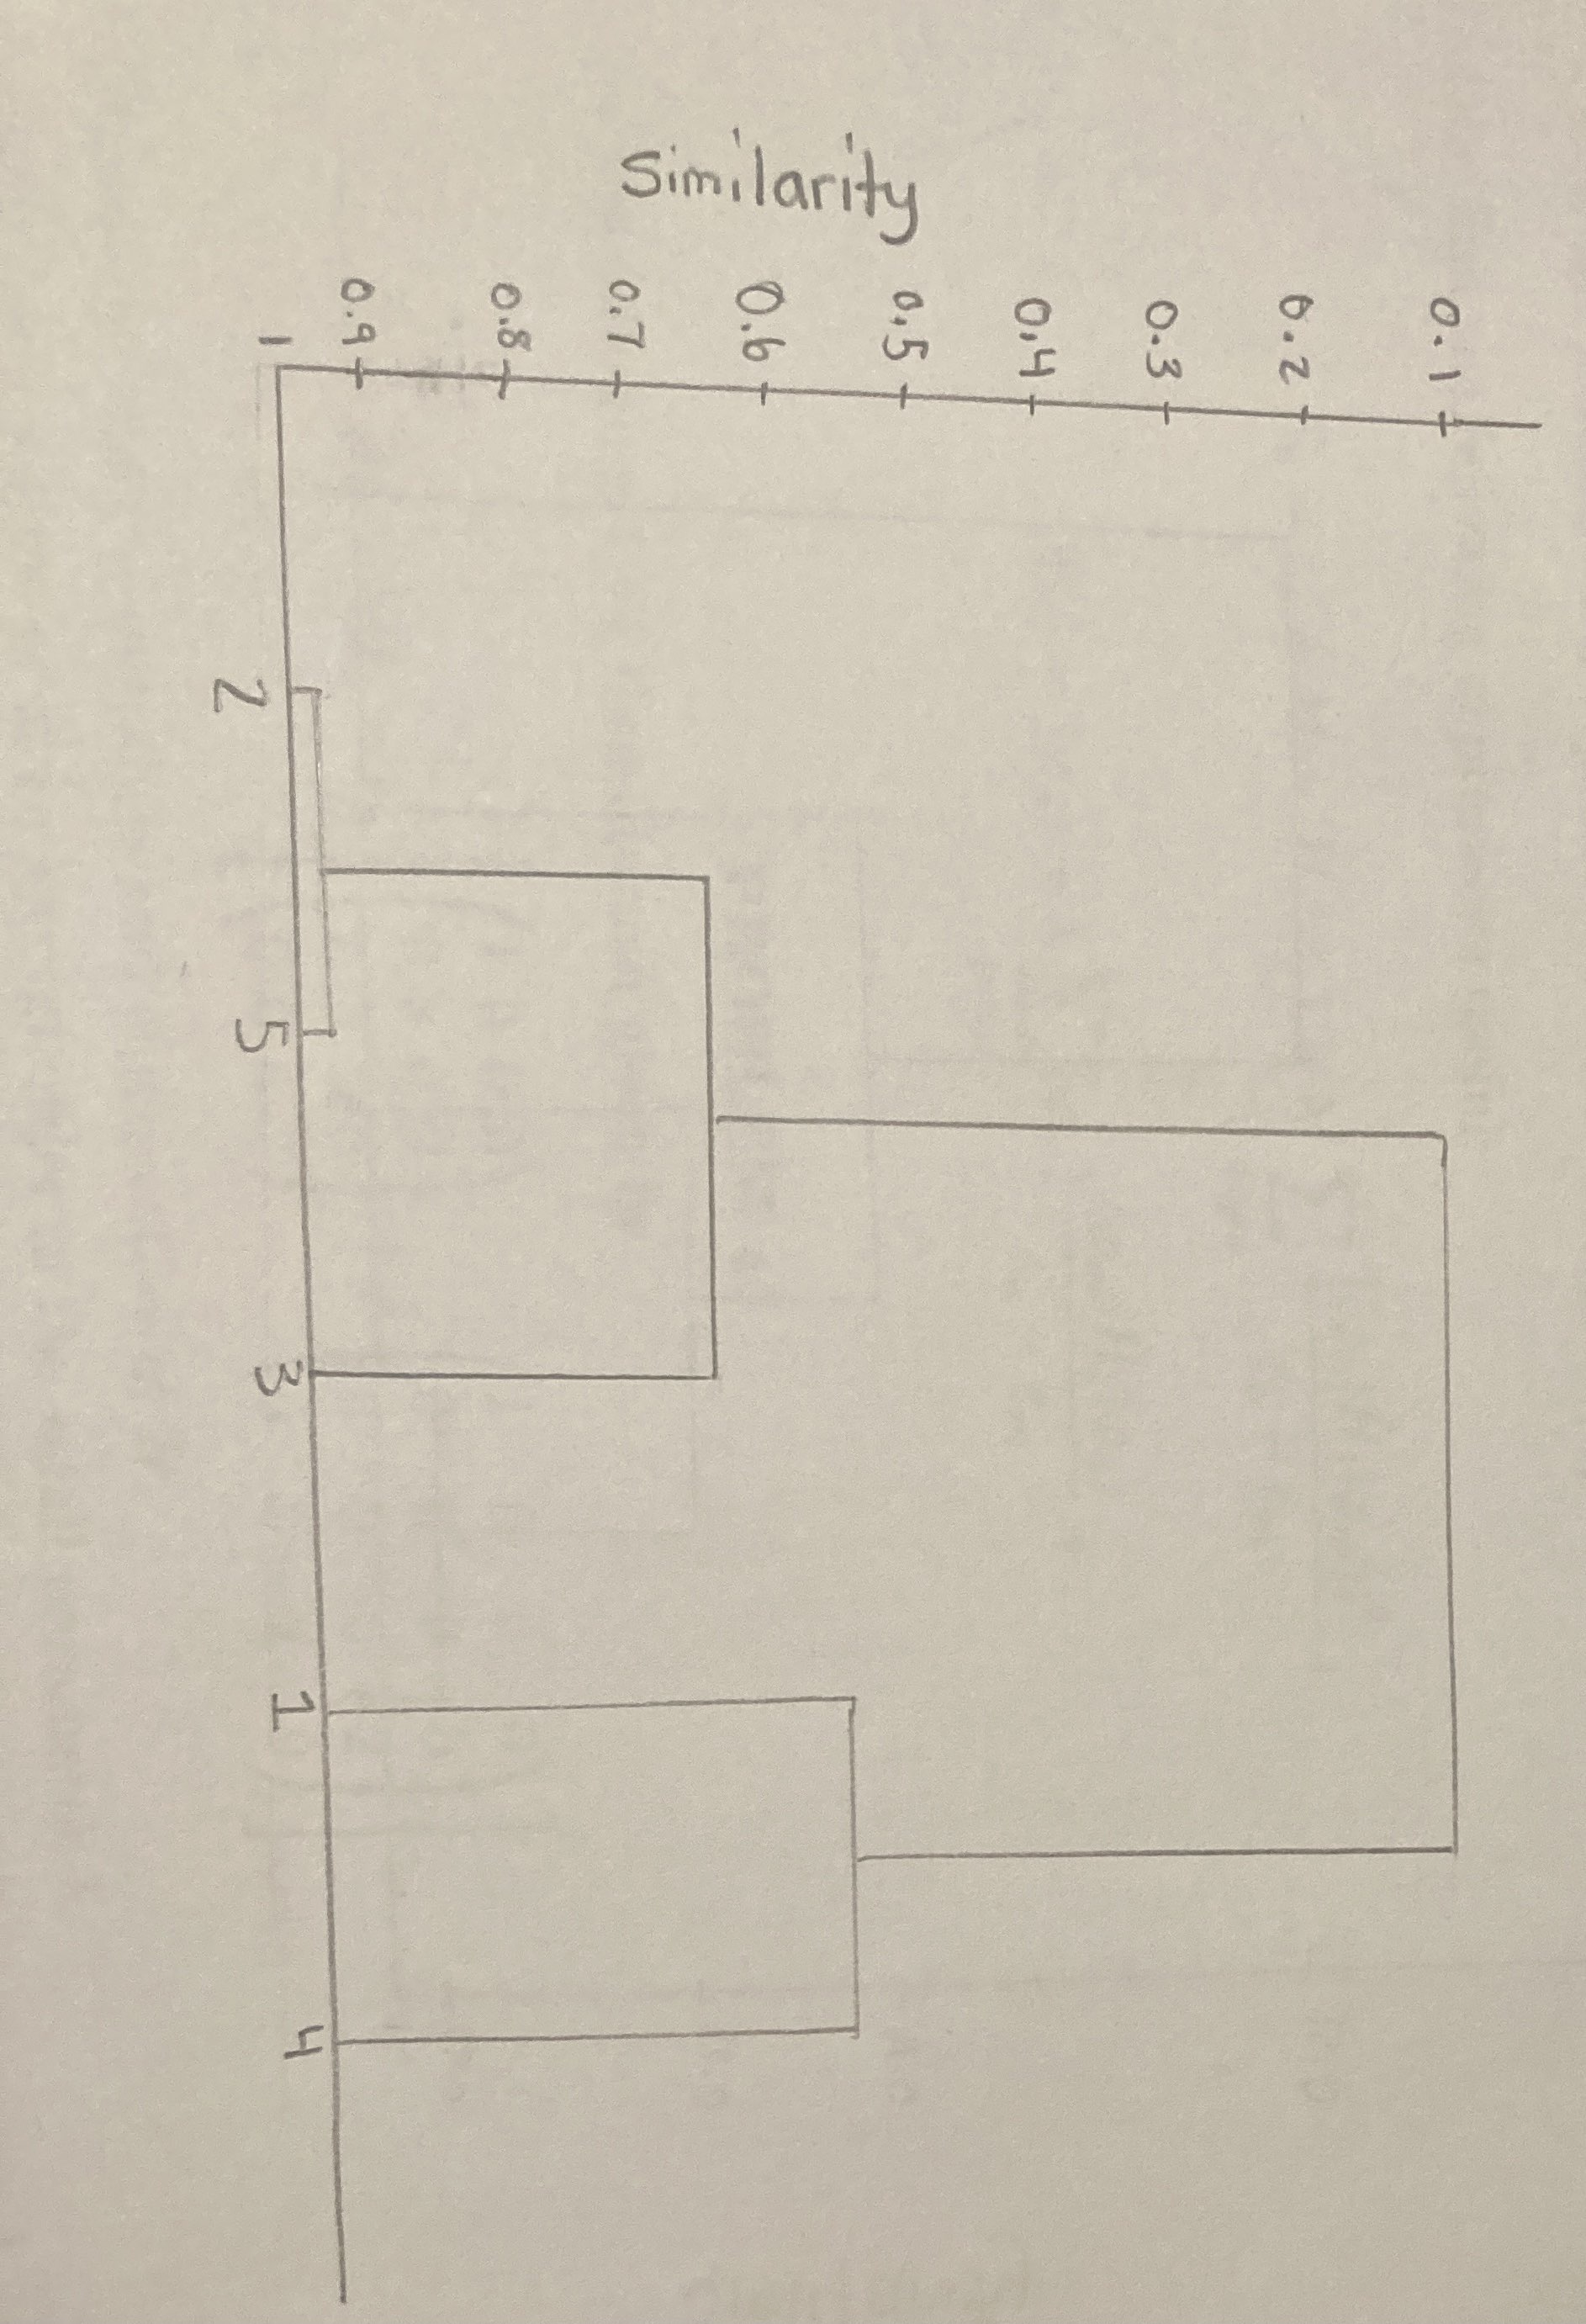 Similarity
0.1
0.2
0.3
0.4
0.5
0.6
0.7
0.8
0.9
1
2 5 3 1 4